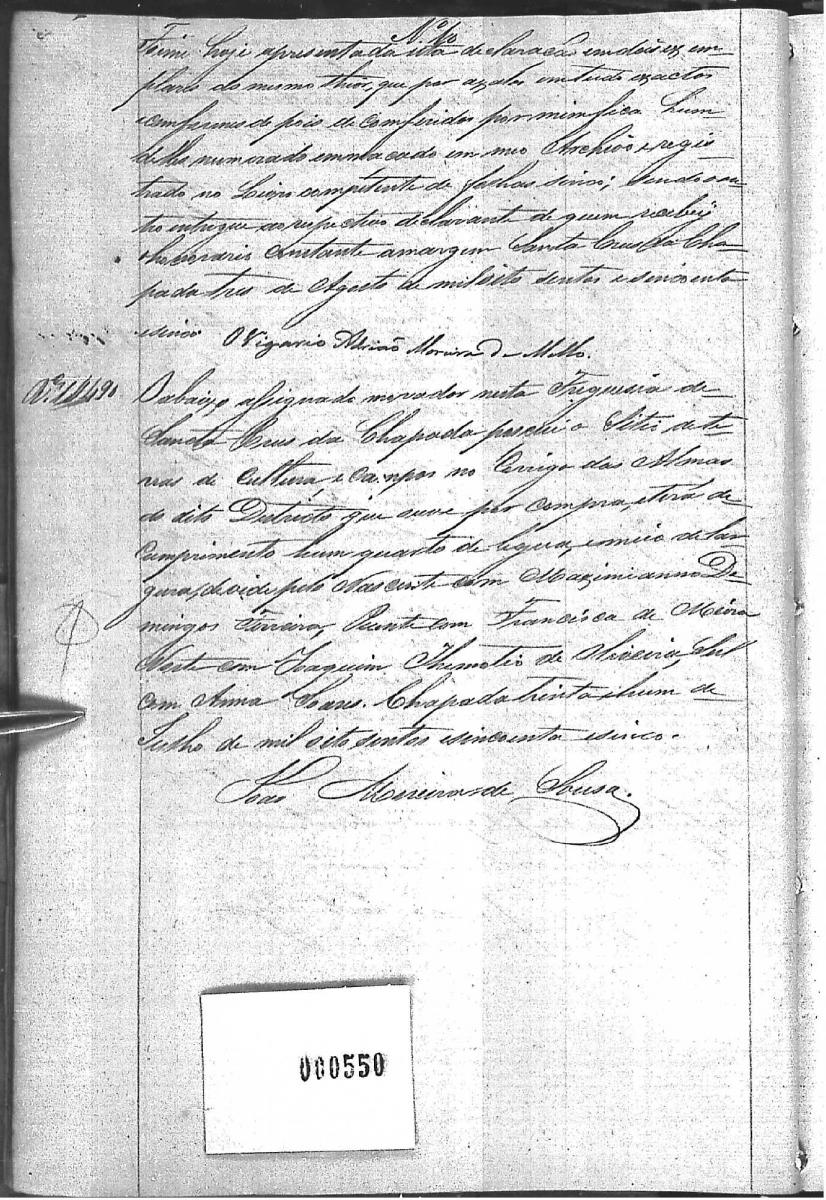 Nº 10
Foi me hoje apresentada esta declaração em dois exem-
plares do mesmo thior, que por axalos em tudo exactos
e comformes de pois de comferidos por mim fica hum
delles numerado emmacado em meo Archivo e regis
trado no Livro competente de folhas sinco; sendo o ou-
tro entregue ao respectivo declarante de quem recebi
o honorario constante a margem Santa Crus da Cha-
pada tres de Agosto de mil oito sentos e sincoenta
e sinco
O Vigario Adrião Moreira de Mello.
490
O abaixo assignado morador nesta Freguesia de
Sancta Crus da Chapada possui o Sitio de te-
rras de Cultura, e campos no Corrigo das Almas
do dito Districto que ouve por compra, e terá de
Comprimento hum quarto de legoa, e meio de lar
gura, devide pelo Nascente com Maximianno Do-
mingos Ferreira, Puente com Francisca de Meira
Norte com Joaquim Themotio de Oliveira, Sul
com Anna Soares. Chapada trinta e hum de
Julho de mil oito sentos e sincoenta e sinco.
João Moreira de Sousa.
000550